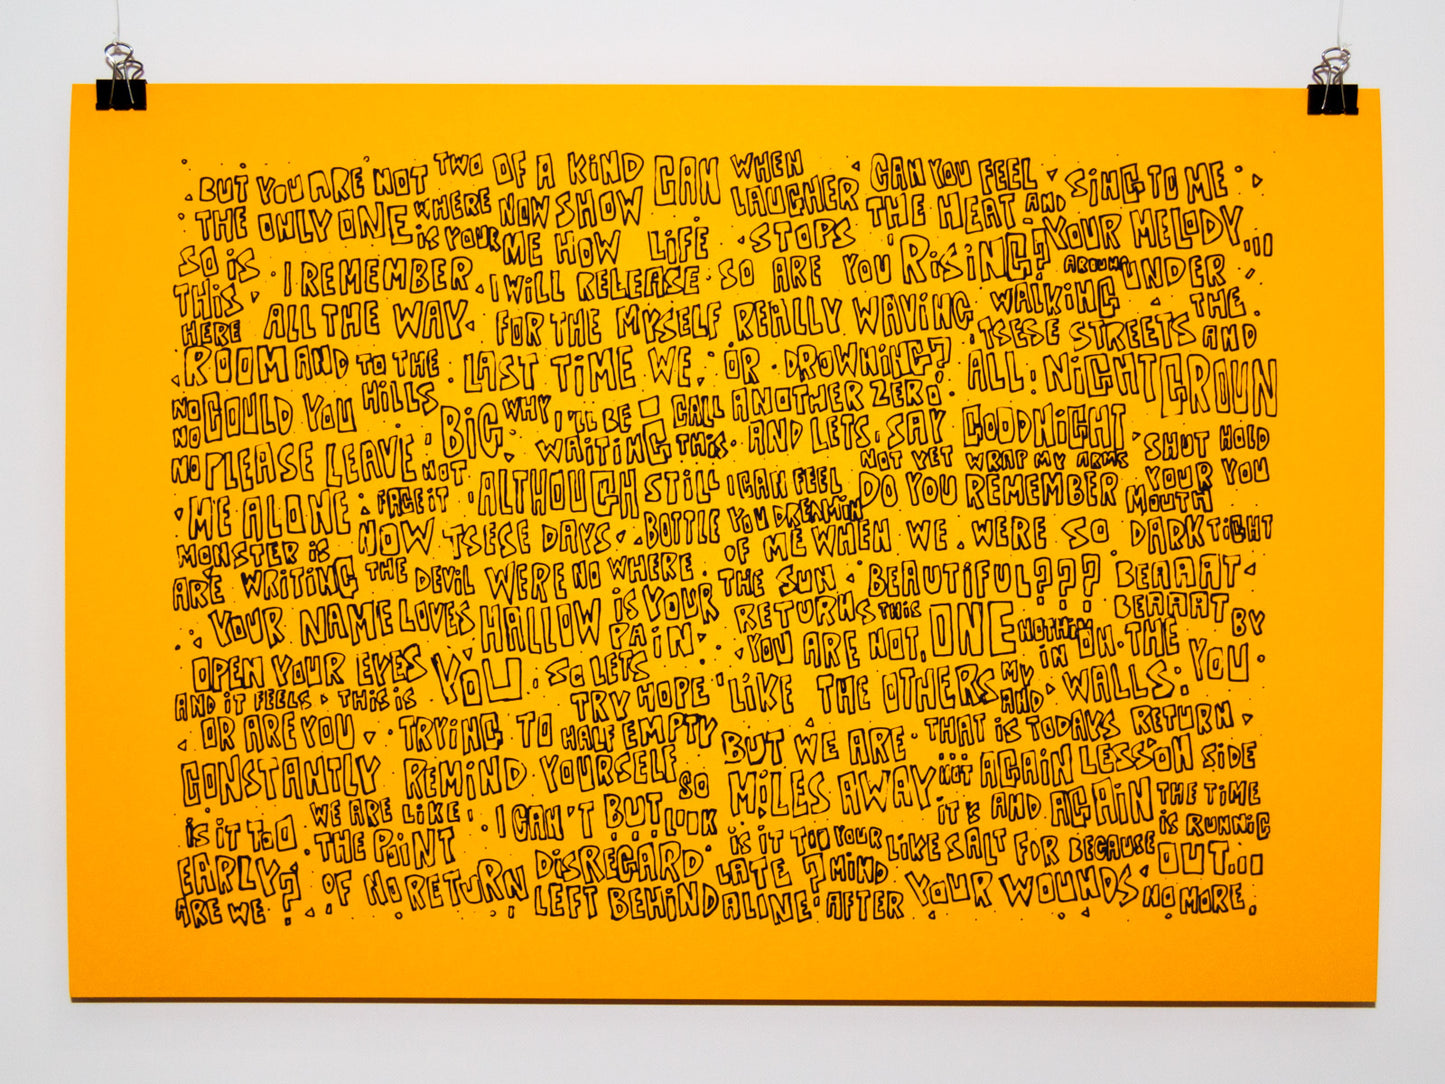 BUT YOU ARE NOT TWO OF A KIND CAN WHEN CAN YOU FEEL SING TO ME
THE ONLY ONE WHERE NOW SHOW LAUGHER THE HEAT AND
SO IS IS YOUR ME HOW LIFE STOPS YOUR MELODY...
THIS I REMEMBER I WILL RELEASE SO ARE YOU RISING? AROUND UNDER
HERE ALL THE WAY FOR THE MYSELF REALLY WAVING WALKING THE
ROOM AND TO THE LAST TIME WE OR DROWNING? TSESE STREETS AND
NO COULD YOU HILLS BIG WHY I'LL BE CALL ANOTHER ZERO ALL NIGHT GROUN
NO WAITING THIS AND LETS SAY GOODNIGHT SHUT HOLD
NO PLEASE LEAVE NOT ALTHOUGH STILL I CAN FEEL NOT YET WRAP MY ARMS YOUR YOU
ME ALONE FACE IT DO YOU REMEMBER MOUTH
MONSTER IS NOW TSESE DAYS BOTTLE YOU DREAMIN OF ME WHEN WE WERE SO DARK TIGHT
ARE WRITING THE DEVIL WERE NO WHERE THE SUN BEAUTIFUL??? BEAAAT
YOUR NAME LOVES HALLOW IS YOUR RETURNS THIS ONE NOTHIN BEAAAT BY
OPEN YOUR EYES YOU PAIN YOU ARE NOT, IN ON THE YOU
AND IT FEELS THIS IS SO LETS LIKE THE OTHERS MY WALLS.
OR ARE YOU TRYING TO TRY HOPE AND THAT IS TODAYS RETURN
CONSTANTLY REMIND YOURSELF HALF EMPTY BUT WE ARE NOT AGAIN LESSON SIDE
IS IT TOO WE ARE LIKE I CAN'T BUT SO MILES AWAY IT'S AND AGAIN THE TIME
EARLY? THE POINT DISREGARD LOOK IS IT TOO YOUR LIKE SALT FOR BECAUSE IS RUNNIG
ARE WE OF NO RETURN LEFT BEHIND LATE? MIND YOUR WOUNDS OUT...
ALINE AFTER NO MORE.